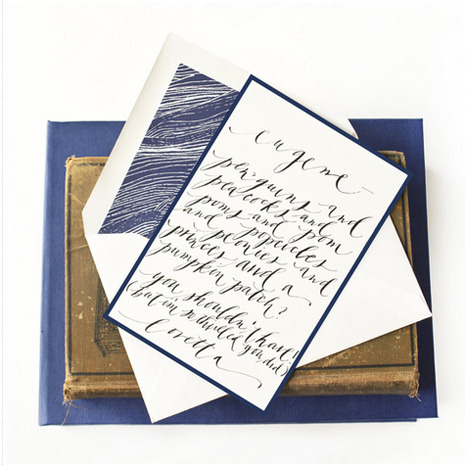 eugene
penguins and
peacocks and
poms and pom
and popsicles
peonies and
princes and a
pumpkin patch?
you shouldn't have!
(but i'm so thrilled you did)
Loretta